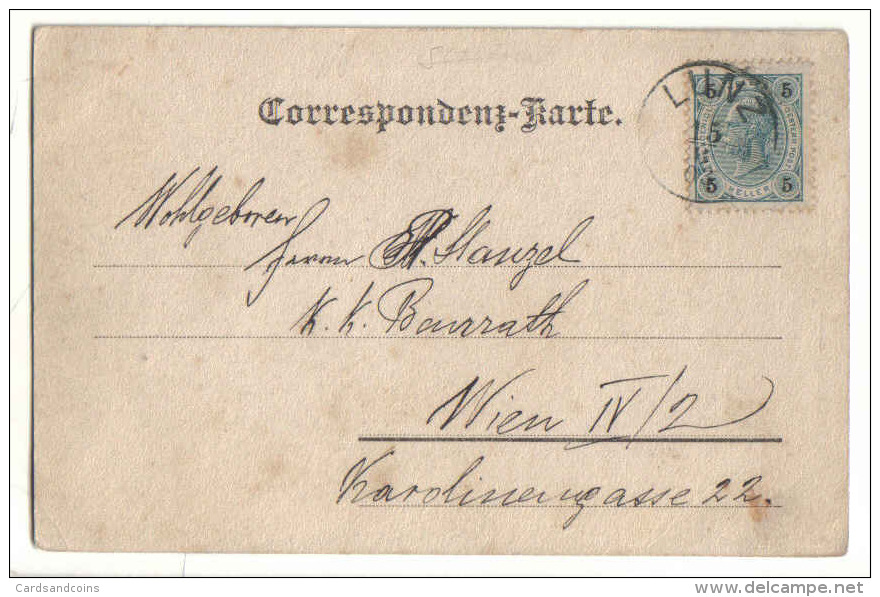 Correspondenz-Karte.
LUNZ
5 5
5 5
HELLER
Wohlgeboren
Herrn A. Stanzel
K. K. Baurrath
Wien IV/2
Karolinengasse 22.
Cardsandcoins
www.delcampe.net